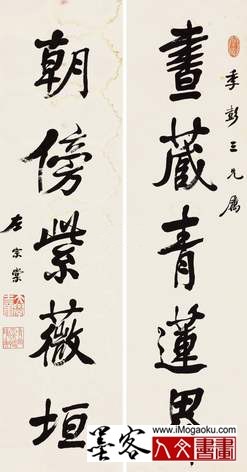 季彭三兄屬
畫藏青蓮界
朝傍紫薇垣
左宗棠
www.iMogaoku.com
墨客